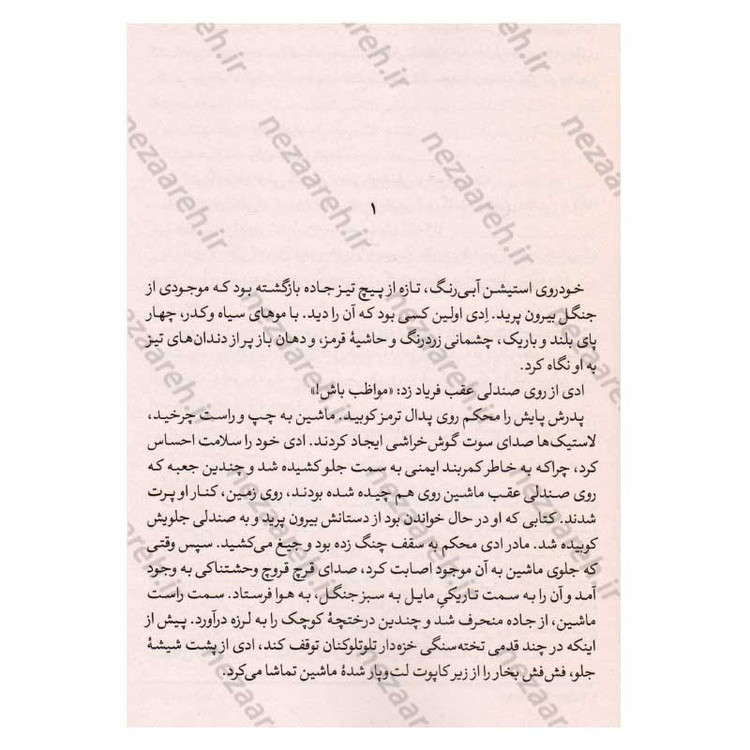 ۱
خودروی استیشن آبی‌رنگ، تازه از پیچ تیز جاده بازگشته بود که موجودی از
جنگل بیرون پرید. اِدی اولین کسی بود که آن را دید. با موهای سیاه وکدر، چهار
پای بلند و باریک، چشمانی زردرنگ و حاشیۀ قرمز، و دهان باز پر از دندان‌های تیز
به او نگاه کرد.
ادی از روی صندلی عقب فریاد زد: «مواظب باش!»
پدرش پایش را محکم روی پدال ترمز کوبید. ماشین به چپ و راست چرخید،
لاستیک‌ها صدای سوت گوش‌خراشی ایجاد کردند. ادی خود را سلامت احساس
کرد، چراکه به خاطر کمربند ایمنی به سمت جلو کشیده شد و چندین جعبه که
روی صندلی عقب ماشین روی هم چیده شده بودند، روی زمین، کنار او پرت
شدند. کتابی که او در حال خواندن بود از دستانش بیرون پرید و به صندلی جلویش
کوبیده شد. مادر ادی محکم به سقف چنگ زده بود و جیغ می‌کشید. سپس وقتی
که جلوی ماشین به آن موجود اصابت کرد، صدای قرچ قروچ وحشتناکی به وجود
آمد و آن را به سمت تاریکیِ مایل به سبز جنگل، به هوا فرستاد. سمت راست
ماشین، از جاده منحرف شد و چندین درختچۀ کوچک را به لرزه درآورد. پیش از
اینکه در چند قدمی تخته‌سنگی خزه‌دار تلوتلوکنان توقف کند، ادی از پشت شیشۀ
جلو، فش‌فش بخار را از زیر کاپوت لت‌وپار شدۀ ماشین تماشا می‌کرد.
nezaareh.ir